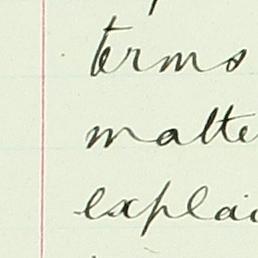 terms
matte
explai